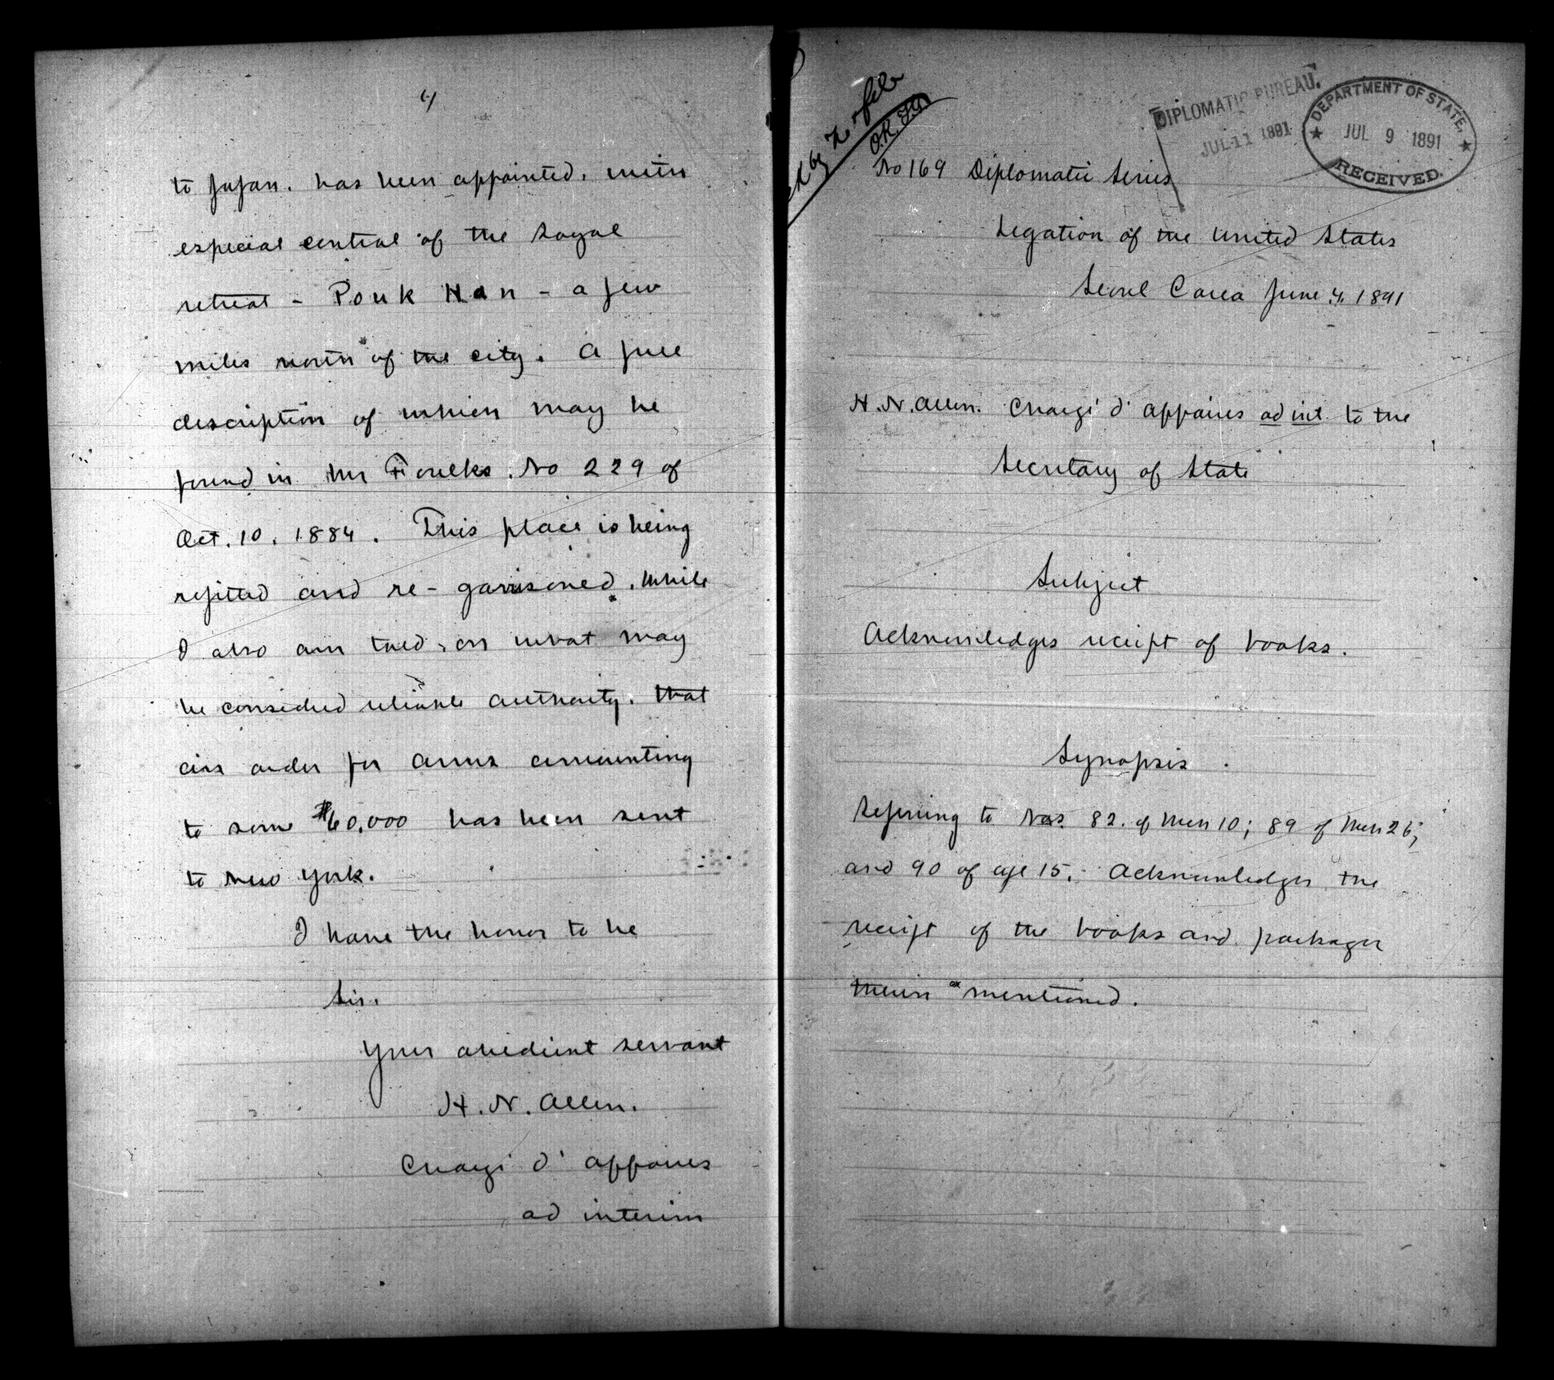 4
to Japan. has been appointed, with
especial control of the Royal
retreat - Pouk Han - a few
miles north of the city. A full
description of which may be
found in Mr Foulks. No 229 of
Oct. 10. 1884. This place is being
refitted and re-garrisoned. While
I also am told, on what may
be considered reliable authority, that
an order for arms amounting
to some $60,000 has been sent
to New York.
I have the honor to be
Sir.
Your obedient servant
H. N. Allen.
Chargé d' Affaires
ad interim
O.K.
DIPLOMATIC BUREAU,
JUL 11 1891
DEPARTMENT OF STATE,
JUL 9 1891
RECEIVED.
No 169 Diplomatic Series
Legation of the United States
Seoul Corea June 4, 1891
H. N. Allen. Chargé d' Affaires ad int. to the
Secretary of State
Subject
Acknowledges receipt of books.
Synopsis.
Referring to Nos. 82. of 10; 89 of 26;
and 90 of 15. Acknowledges the
receipt of the books and packages
therein as mentioned.